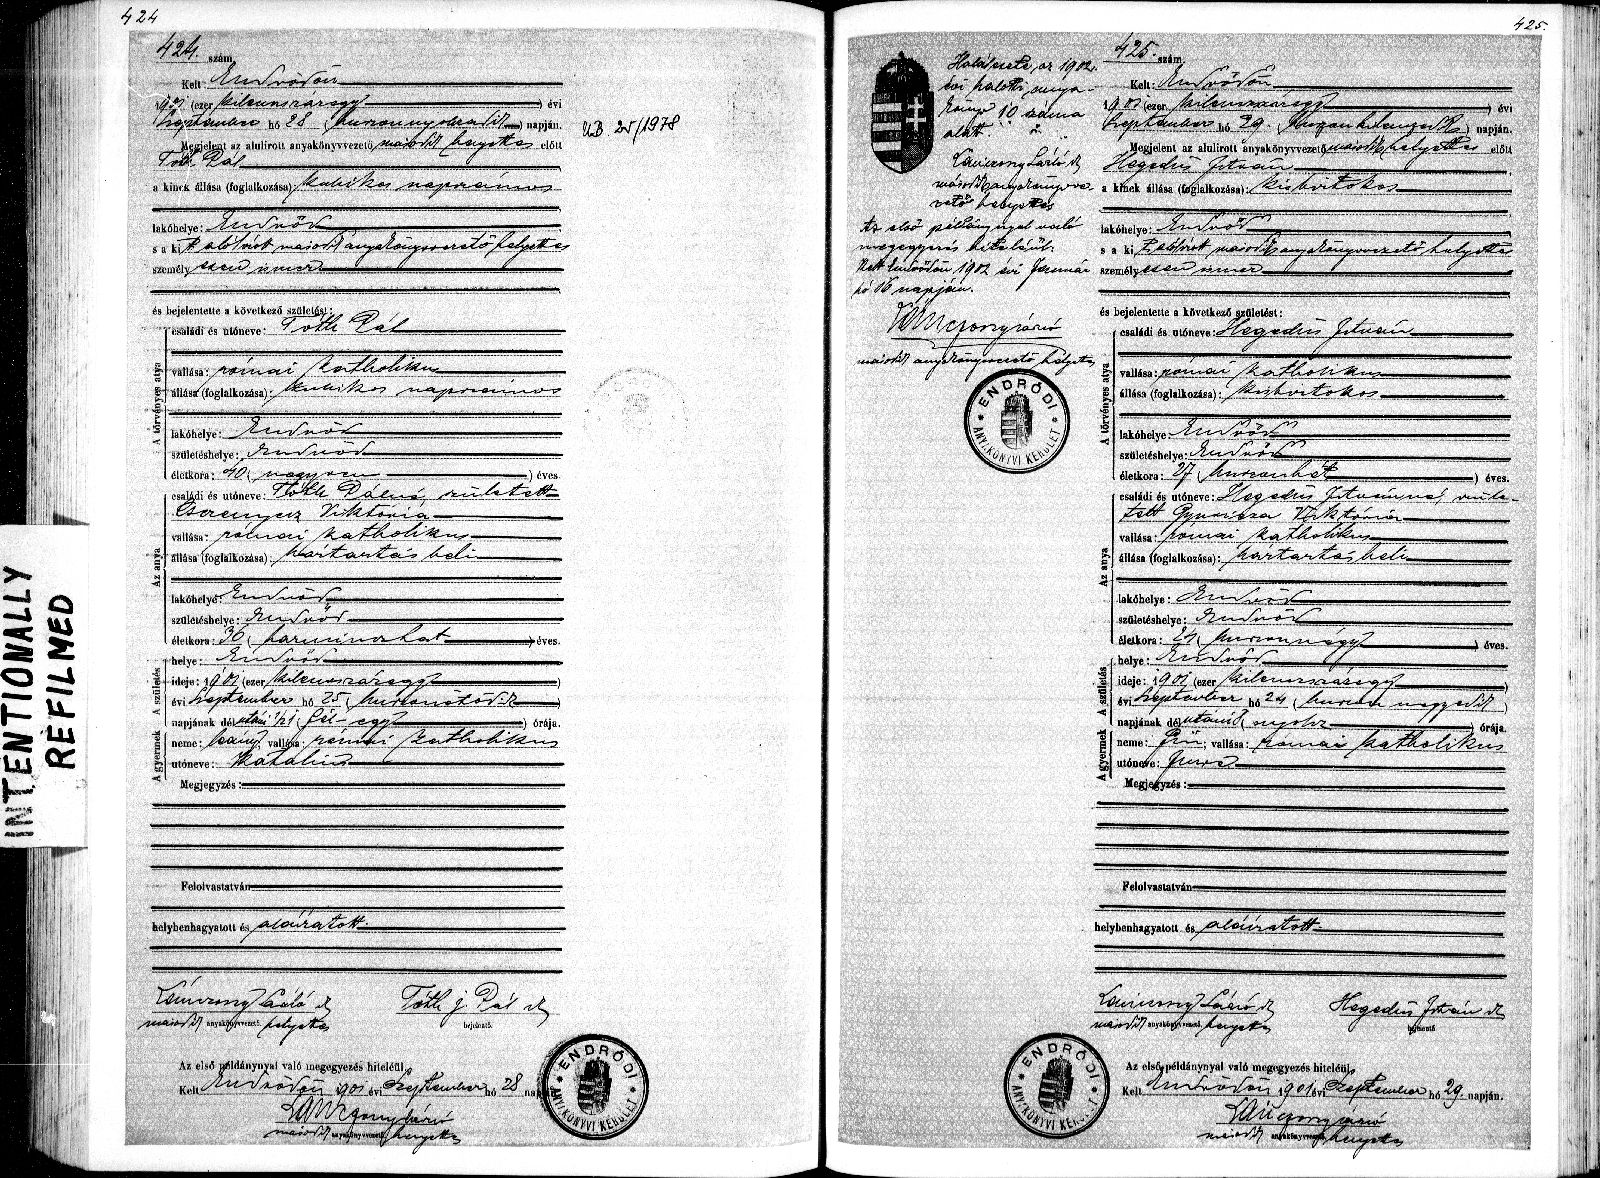 424
424. szám.
Kelt Endrődön
1901 (ezer kilencszázegy) évi
Szeptember hó 28 (huszonnyolczadik) napján.
Megjelent az alulirott anyakönyvvezető másodh helyettes előtt
Tóth Pál
a kinek állása (foglalkozása) kubikos napszámos
lakóhelye: Endrőd
s a kit alólirott másodh anyakönyvvezető helyettes
személyesen ismer
és bejelentette a következő születést:
A törvényes atya
családi és utóneve: Tóth Pál
vallása: római katholikus
állása (foglalkozása): kubikos napszámos
lakóhelye: Endrőd
születéshelye: Endrőd
életkora: 40 (negyven) éves.
Az anya
családi és utóneve: Tóth Pálné, született
Cserenyecz Viktória
vallása: római katholikus
állása (foglalkozása): háztartásbeli
lakóhelye: Endrőd
születéshelye: Endrőd
életkora: 36 (harminczhat) éves.
A gyermek A születés
helye: Endrőd
ideje: 1901 (ezer kilencszázegy)
évi Szeptember hó 25 (huszonötödik)
napjának délutáni 1/2 1 (fél-egy) órája.
neme: leány; vallása: római katholikus
utóneve: Katalin
Megjegyzés:
Felolvastatván
helybenhagyatott és aláíratott.
Lánczony László dk
másodh anyakönyvvezető. helyettes
Tóth j. Pál dk
bejelentő.
Az első példánynyal való megegyezés hiteléül.
Kelt Endrődön 1901 évi Szeptember hó 28 napján
másodh anyakönyvvezető. helyettes
ENDRŐDI
ANYAKÖNYVI KERÜLET
25/1978
INTENTIONALLY
REFILMED
425.
Halálesete az 1902.
évi halotti anya-
könyv 10 száma
alatt.
Lánczony László dk
másodh anyakönyvve-
zető helyettes
Az első példánynyal való
megegyezés hiteléül.
Kelt Endrődön 1902 évi Január
hó 16 napján.
másodh anyakönyvvezető helyettes
ENDRŐDI
ANYAKÖNYVI KERÜLET
425. szám.
Kelt: Endrődön
1901 (ezer kilencszázegy) évi
Szeptember hó 29. (huszonkilenczedik) napján.
Megjelent az alulirott anyakönyvvezető másodh helyettes előtt
Hegedüs István
a kinek állása (foglalkozása): kisbirtokos
lakóhelye: Endrőd
s a kit alólirott másodh anyakönyvvezető helyettes
személyesen ismer
és bejelentette a következő születést:
A törvényes atya
családi és utóneve: Hegedüs István
vallása: római katholikus
állása (foglalkozása): kisbirtokos
lakóhelye: Endrőd
születéshelye: Endrőd
életkora: 27 (huszonhét) éves.
Az anya
családi és utóneve: Hegedüs Istvánné, szüle-
tett Gyuricza Viktória
vallása: római katholikus
állása (foglalkozása): háztartásbeli
lakóhelye: Endrőd
születéshelye: Endrőd
életkora: 24 (huszonnégy) éves.
A gyermek A születés
helye: Endrőd
ideje: 1901 (ezer kilencszázegy)
évi Szeptember hó 24 (huszonnegyedik)
napjának délutáni 8 (nyolcz) órája.
neme: fiú; vallása: római katholikus
utóneve: Imre
Megjegyzés:
Felolvastatván
helybenhagyatott és aláíratott.
Lánczony László dk
másodh anyakönyvvezető. helyettes
Hegedüs István dk
bejelentő
Az első példánynyal való megegyezés hiteléül.
Kelt Endrődön 1901 évi Szeptember hó 29. napján.
másodh anyakönyvvezető. helyettes
ENDRŐDI
ANYAKÖNYVI KERÜLET